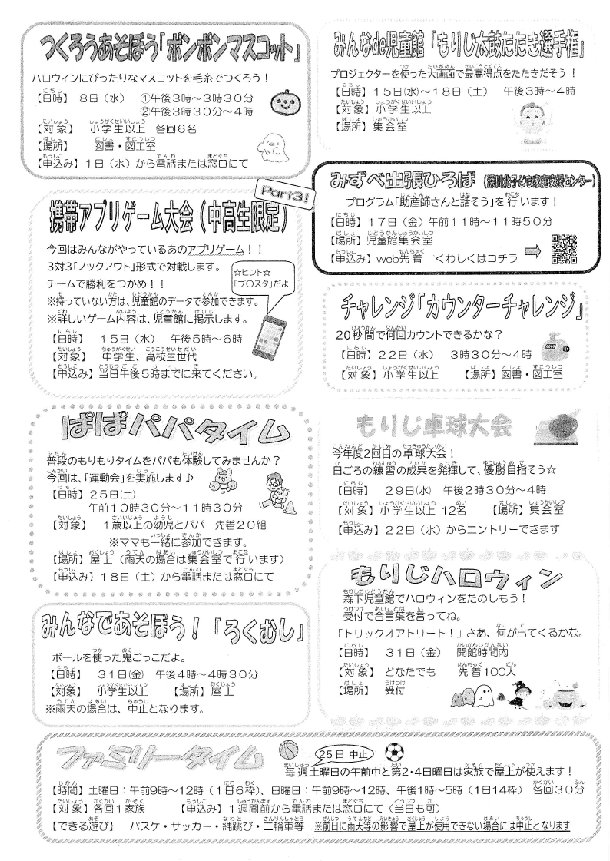 つくろうあそぼう「ポンポンマスコット」
ハロウィンにぴったりなマスコットを毛糸でつくろう！
【日時】 8日（水） ①午後3時～3時30分
②午後3時30分～4時
【対象】 小学生以上 各回6名
【場所】 図書・図工室
【申込み】1日（水）から電話または窓口にて
携帯アプリゲーム大会（中高生限定）
Part3!
今回はみんながやっているあのアプリゲーム！！
3対3「ノックアウト」形式で対戦します。
チームで勝利をつかめ！！
※持っていない方は、児童館のデータで参加できます。
※詳しいゲーム内容は、児童館に掲示します。
☆ヒント☆
「ブロスタ」だよ
【日時】 15日（水） 午後5時～6時
【対象】 中学生、高校生世代
【申込み】当日午後5時までに来てください。
ぱぱパパタイム
普段のもりもりタイムをパパも体験してみませんか？
今回は、「運動会」を実施します♪
【日時】25日（土）
午前10時30分～11時30分
【対象】 1歳以上の幼児とパパ 先着20組
※ママも一緒に参加できます。
【場所】屋上（雨天の場合は集会室で行います）
【申込み】18日（土）から電話または窓口にて
みんなであそぼう！「ろくむし」
ボールを使った鬼ごっこだよ。
【日時】 31日（金） 午後4時～4時30分
【対象】 小学生以上 【場所】屋上
※雨天の場合は、中止となります。
みんなde児童館「もりじ太鼓たたき選手権」
プロジェクターを使った大画面で最高得点をたたきだそう！
【日時】15日（水）～18日（土） 午後3時～4時
【対象】小学生以上
【場所】集会室
みずべ出張ひろば
プログラム「助産師さんと話そう」を行います！
【日時】17日（金）午前11時～11時50分
【場所】児童館集会室
【申込み】web先着 くわしくはコチラ
チャレンジ「カウンターチャレンジ」
20秒間で何回カウントできるかな？
【日時】22日（水） 3時30分～4時
【対象】小学生以上 【場所】図書・図工室
もりじ卓球大会
今年度2回目の卓球大会！
日ごろの練習の成果を発揮して、優勝目指そう☆
【日時】 29日（水）午後2時30分～4時
【対象】小学生以上 12名 【場所】集会室
【申込み】22日（水）からエントリーできます
もりじハロウィン
森下児童館でハロウィンをたのしもう！
受付で合言葉を言ってね。
「トリックオアトリート！」さあ、何がもらえるかな。
【日時】 31日（金） 開館時間内
【対象】 どなたでも 先着100人
【場所】 受付
ファミリータイム
25日 中止
毎週土曜日の午前中と第2・4日曜日は家族で屋上が使えます！
【時間】土曜日：午前9時～12時（1日6枠）、日曜日：午前9時～12時、午後1時～5時（1日14枠） 各回30分
【対象】各回1家族 【申込み】1週間前から電話または窓口にて（当日も可）
【できる遊び】 バスケ・サッカー・縄跳び・三輪車等 ※前日に雨天等の影響で屋上が使用できない場合には中止となります